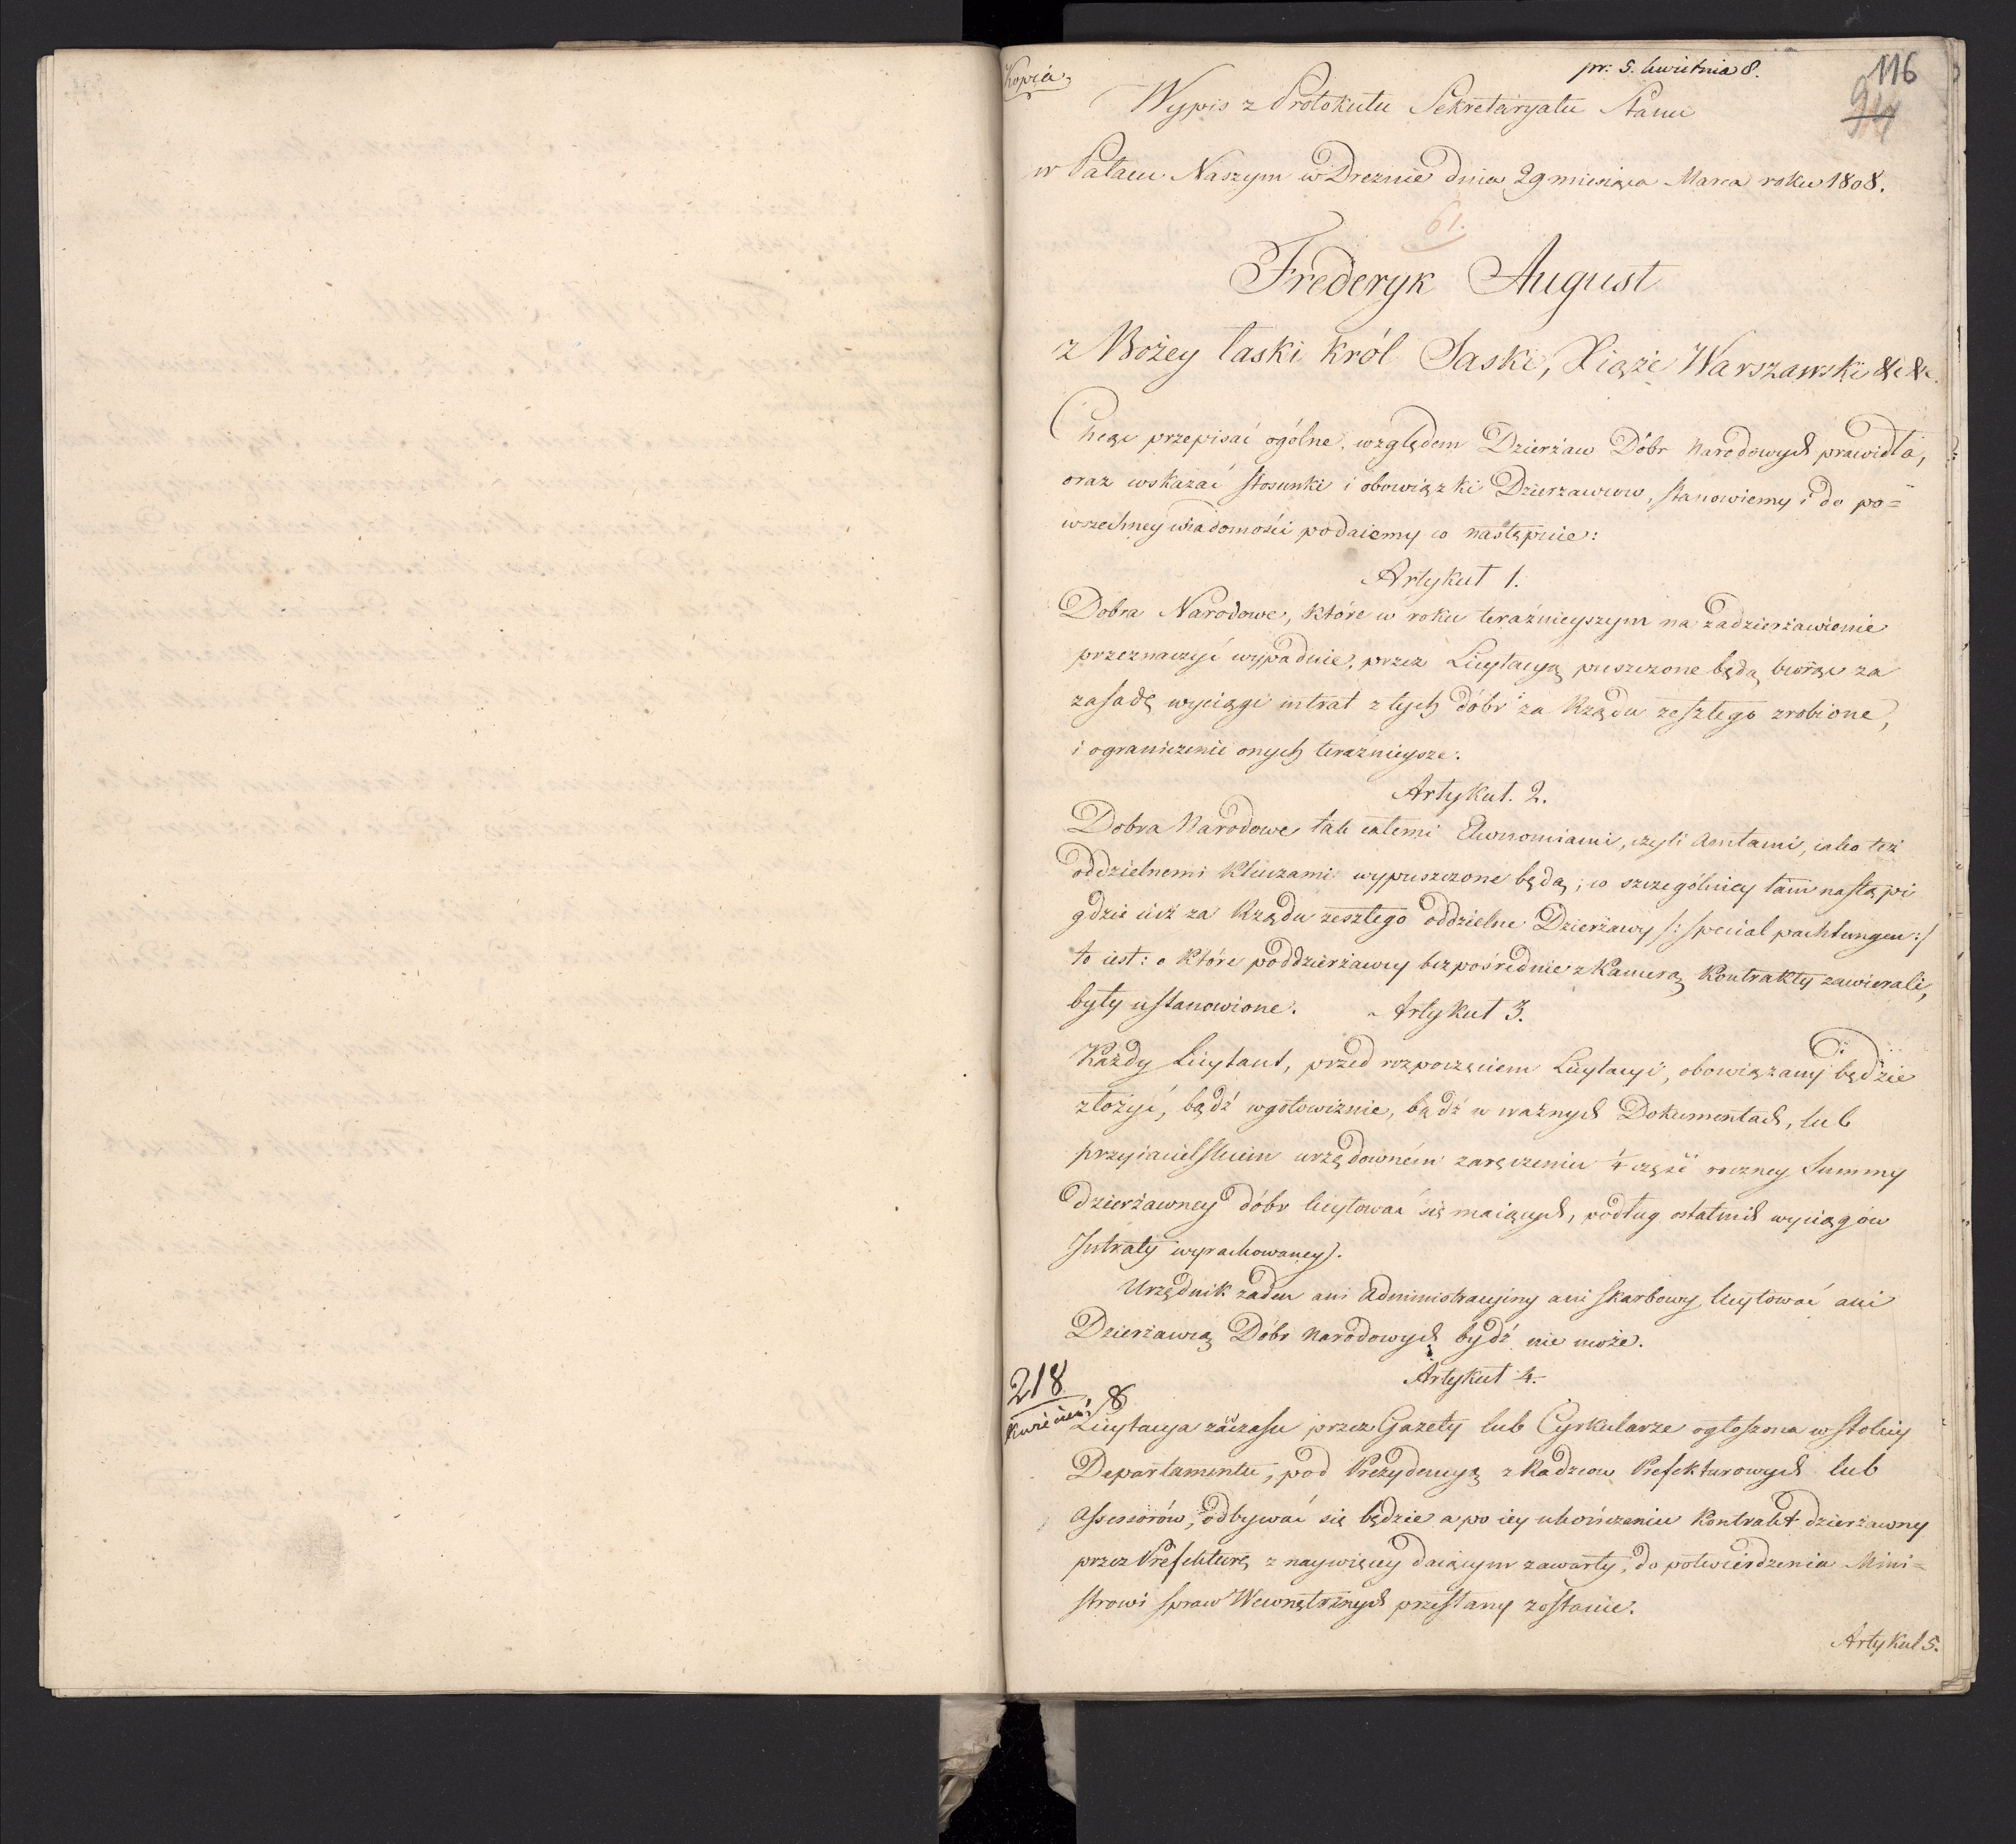 Kopia
pr: 5. kwietnia 8.
116
94
Wypis z Protokułu Sekretaryatu Stanu
w Pałacu Naszym w Dreznie dnia 29 miesiąca Marca roku 1808.
61.
Frederyk August
z Bożey łaski Król Saski, Xiąże Warszawski &c &c.
Chcąc przepisać ogólne, względem Dzierżaw Dóbr Narodowych prawidła,
oraz wskazać stosunki i obowiązki Dzierżawców, stanowiemy i do po=
wszechney wiadomości podaiemy co następuie:
Artykuł 1.
Dobra Narodowe, które w roku teraźnieyszym na zadzierżawienie
przeznaczyć wypadnie, przez Licytacyą puszczone będą, biorąc za
zasadę wyciągi intrat z tych dóbr za Rządu zeszłego zrobione,
i ograniczenie onych teraznieysze.
Artykuł. 2.
Dobra Narodowe tak całemi Ekonomiami, czyli Amtami, iako też
oddzielnemi Kluczami wypuszczone będą; co szczególniey tam nastąpi
gdzie iuż za Rządu zeszłego oddzielne Dzierżawy /: special pachtungen :/
to iest: o które poddzierżawcy bezpośrednie z Kamerą Kontrakty zawierali,
były ustanowione. Artykuł 3.
Każdy Licytant, przed rozpoczęciem Licytacyi, obowiązany będzie
złożyć, bądź w gotowiznie, bądź w ważnych Dokumentach, lub
przyiacielskiem urzędowném zaręczeniu 1/4 część roczney Summy
dzierżawney dóbr licytować się maiących, podług ostatnich wyciągów
Intraty wyrachowaney.
Urzędnik żaden ani Administracyiny ani skarbowy licytować ani
Dzierżawcą Dóbr Narodowych bydź nie może.
Artykuł 4.
218
Kwiecień 8
Licytacya zawczasu przez Gazety lub Cyrkularze ogłoszona w stolicy
Departamentu, pod Prezydencyą z Radzców Prefekturowych lub
Assessorów, odbywać się będzie a po iey ukończeniu Kontrakt dzierżawny
przez Prefekturę z naywięcey daiącym zawarty, do potwierdzenia Mini=
strowi spraw Wewnętrznych przesłany zostanie.
Artykuł 5.